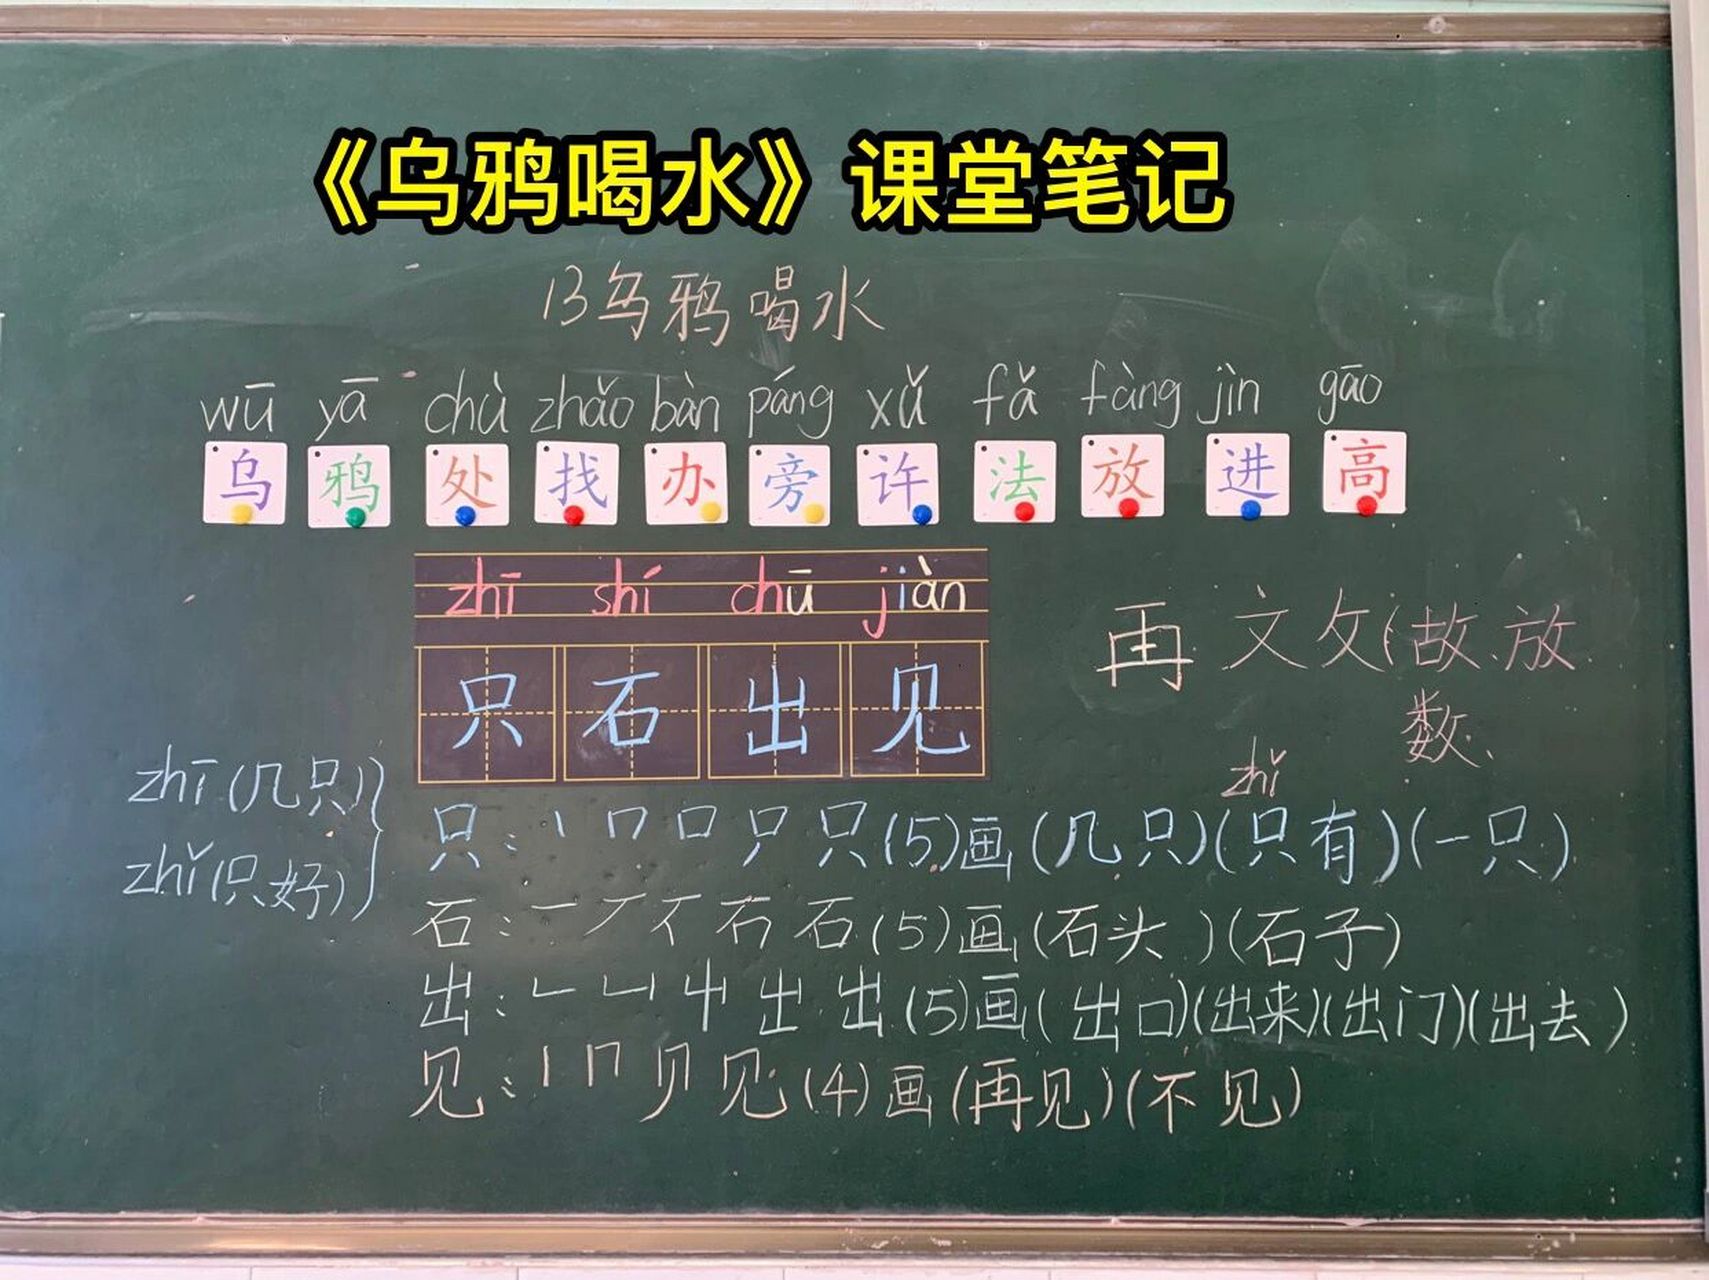 《乌鸦喝水》课堂笔记
13乌鸦喝水
wū yā chù zhǎo bàn páng xǔ fǎ fàng jìn gāo
乌 鸦 处 找 办 旁 许 法 放 进 高
zhī shí chū jiàn
只 石 出 见
再 文 攵(故、放、
数、
zhī(几只)
zhǐ(只好)
zhǐ
只：丨 𠃍 口 尸 只(5)画(几只)(只有)(一只)
石：一 丆 不 石 石(5)画(石头)(石子)
出：𠃊 凵 屮 出 出(5)画(出口)(出来)(出门)(出去)
见：丨 冂 贝 见(4)画(再见)(不见)